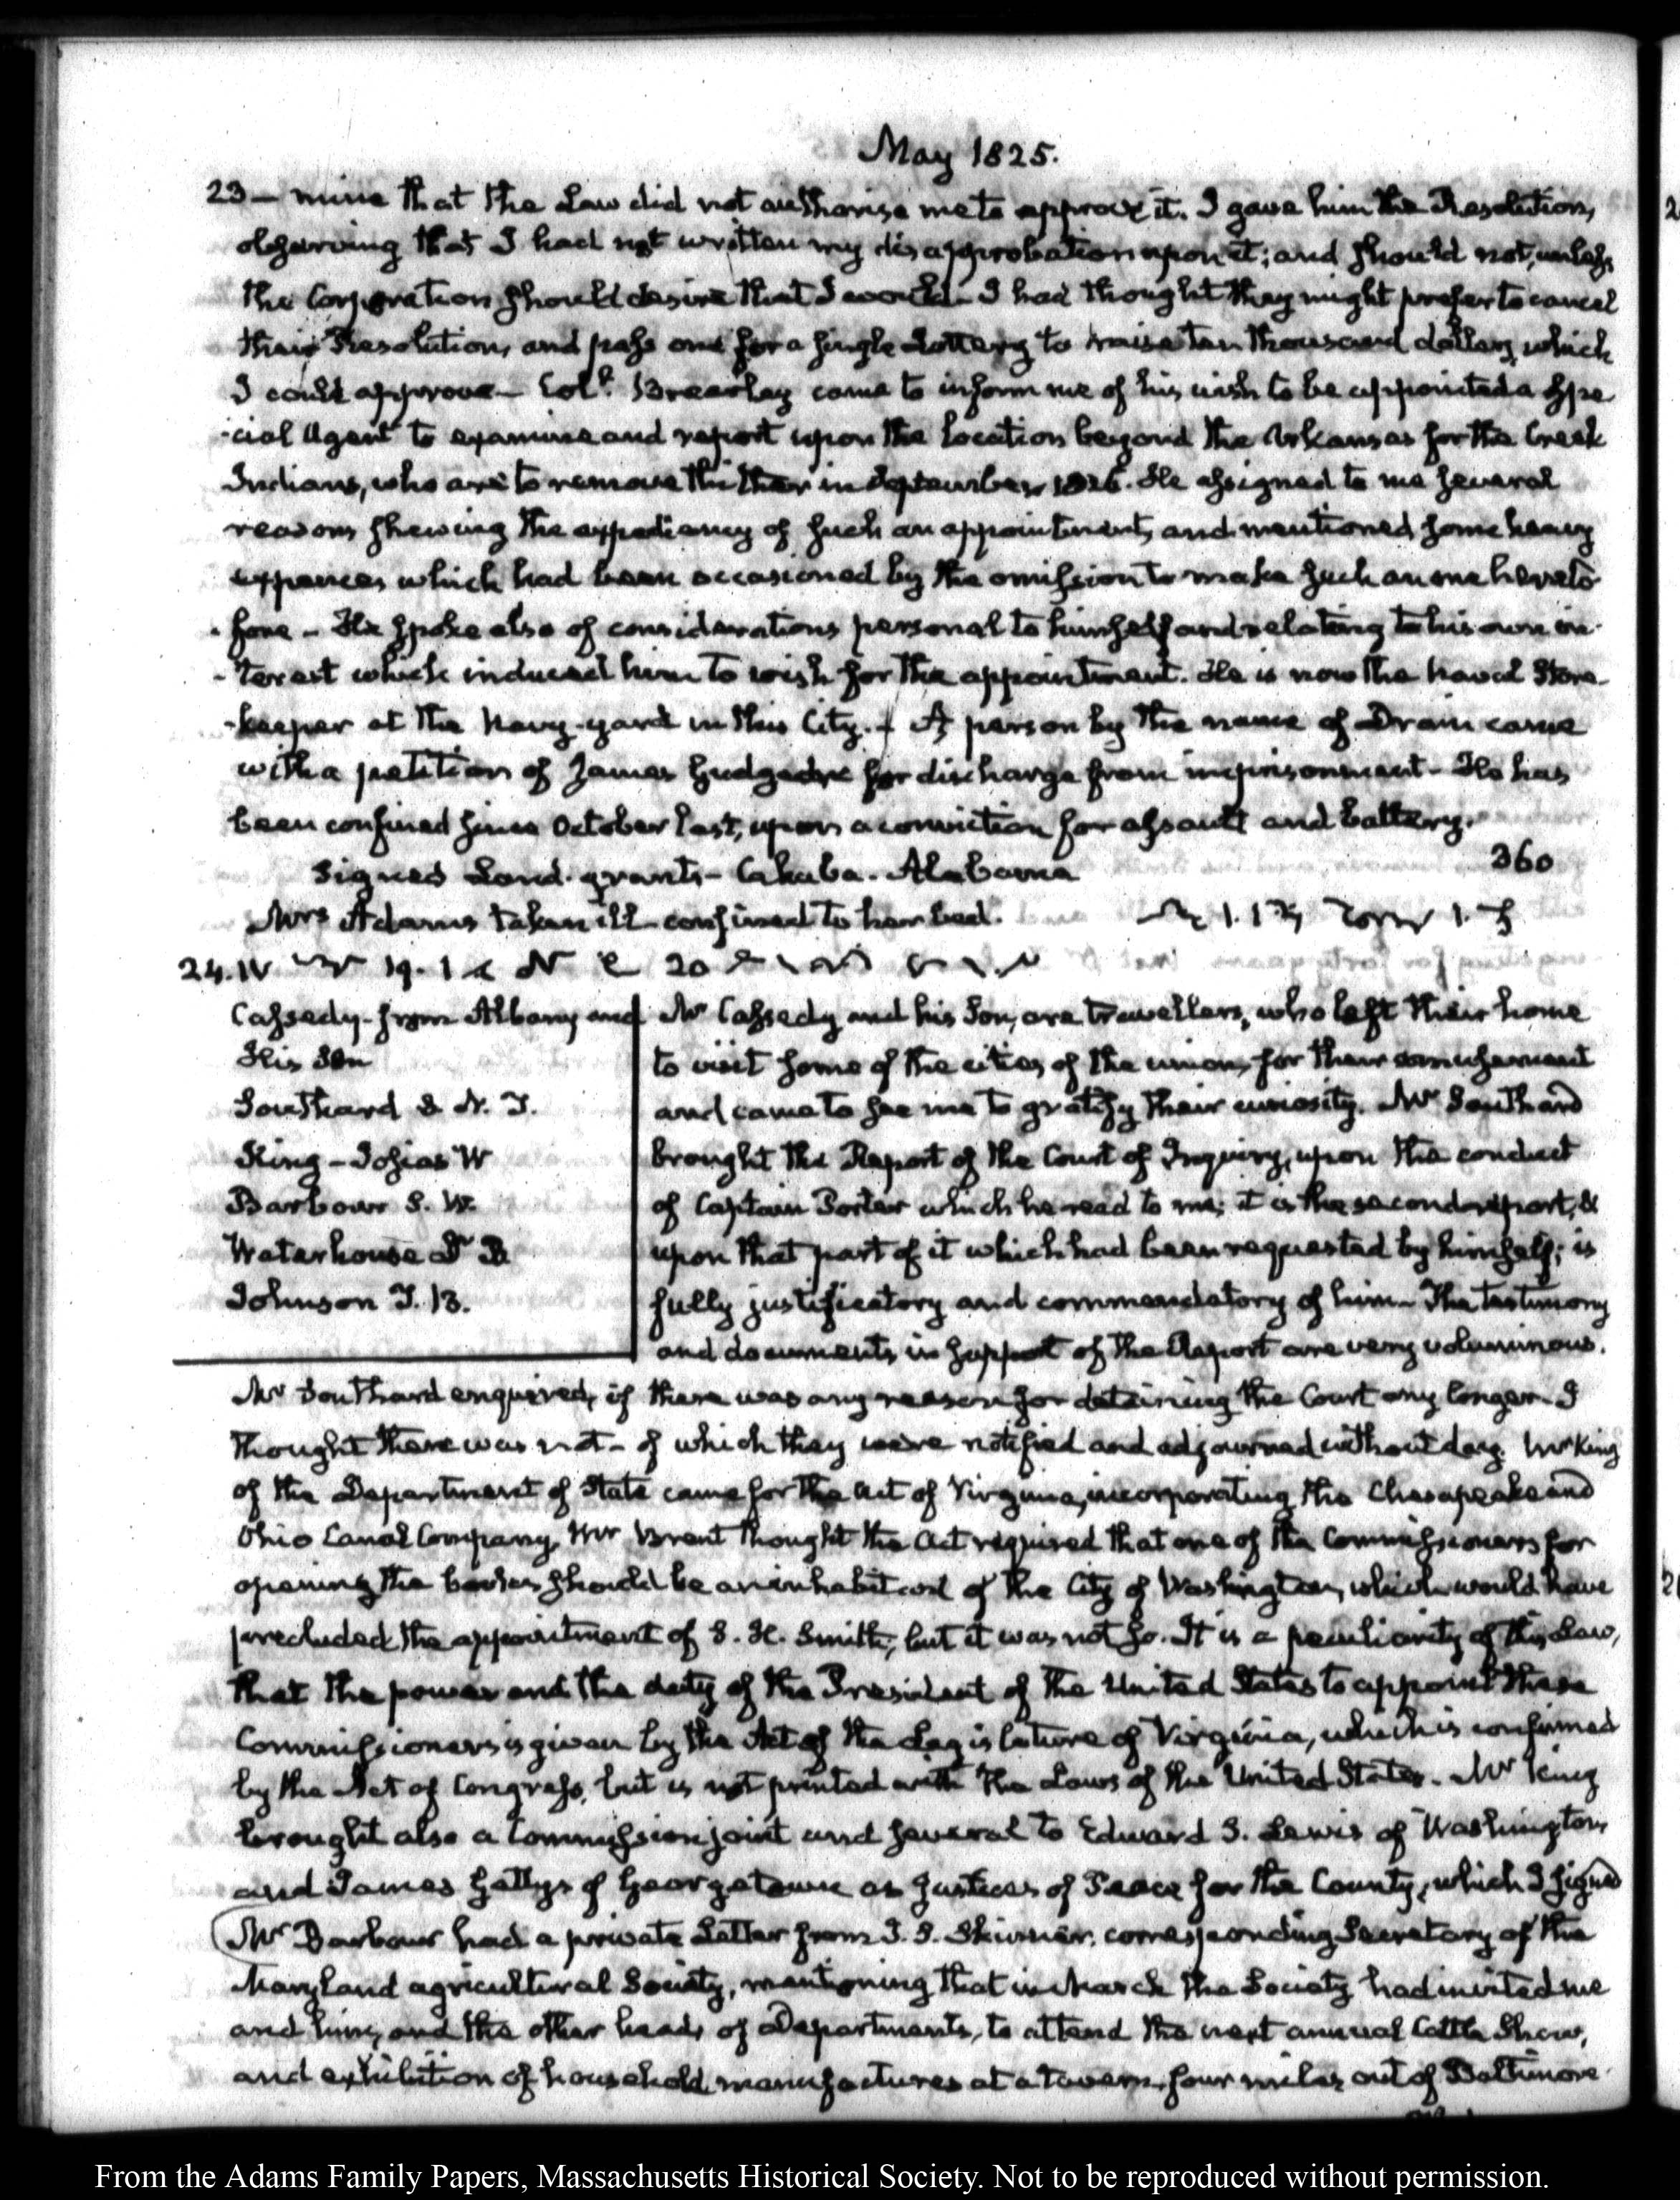 May 1825.
23 — mine that the Law did not authorise me to approve it. I gave him the Resolution,
observing that I had not written my disapprobation upon it; and should not, unless
the Corporation should desire that I would— I had thought they might prefer to cancel
their Resolution, and pass one for a single Lottery to raise ten thousand dollars, which
I could approve— Coll. Brearley came to inform me of his wish to be appointed a spe
-cial Agent to examine and report upon the location beyond the Arkansas for the Creek
Indians, who are to remove thither in September 1826. He assigned to me several
reasons shewing the expediency of such an appointment, and mentioned some heavy
expences which had been occasioned by the omission to make such an one hereto
-fore— He spoke also of considerations personal to himself and relating to his own in-
-terest which induced him to wish for the appointment. He is now the Naval Store-
-keeper at the Navy-yard in this City.— A person by the name of Drain came
with a petition of James for discharge from imprisonment— He has
been confined since October last, upon a conviction for assault and battery.
Signed Land-grants— Cahaba. Alabama 360
Mrs. Adams taken ill confined to her bed.
24. IV
Cassedy- from Albany and
His Son
Southard S. N. J.
King— Josias W
Barbour S. W.
Waterhouse Dr B
Johnson J. B.
Mr Cassedy and his Son, are travellers, who left their home
to visit some of the cities of the union, for their amusement
and came to see me to gratify their curiosity. Mr Southard
brought the Report of the Court of Inquiry, upon the conduct
of Captain Porter which he read to me; it is the second report, &
upon that part of it which had been requested by himself; is
fully justificatory and commendatory of him— The testimony
and documents in support of the Report are very voluminous.
Mr Southard enquired, if there was any reason for detaining the Court any longer— I
thought there was not— of which they were notified and adjourned without day. Mr King
of the Department of State came for the Act of Virginia, incorporating the Chesapeake and
Ohio Canal Company, Mr Brent thought the Act required that one of the Commissioners for
opening the books should be an inhabitant of the City of Washington, which would have
precluded the appointment of S. H. Smith, but it was not so. It is a peculiarity of this Law,
that the power and the duty of the President of the United States to appoint these
Commissioners is given by the Act of the Legislature of Virginia, which is confirmed
by the Act of Congress, but is not printed with the Laws of the United States. Mr King
brought also a Commission joint and several to Edward S. Lewis of Washington,
and James Gettys of Georgetown as Justices of Peace for the County, which I signed
Mr Barbour had a private Letter from J. S. Skinner, corresponding Secretary of the
Maryland agricultural Society, mentioning that in March the Society had invited me
and him, and the other heads of Departments, to attend the next annual Cattle Show,
and exhibition of household manufactures at a tavern, four miles out of Baltimore
From the Adams Family Papers, Massachusetts Historical Society. Not to be reproduced without permission.